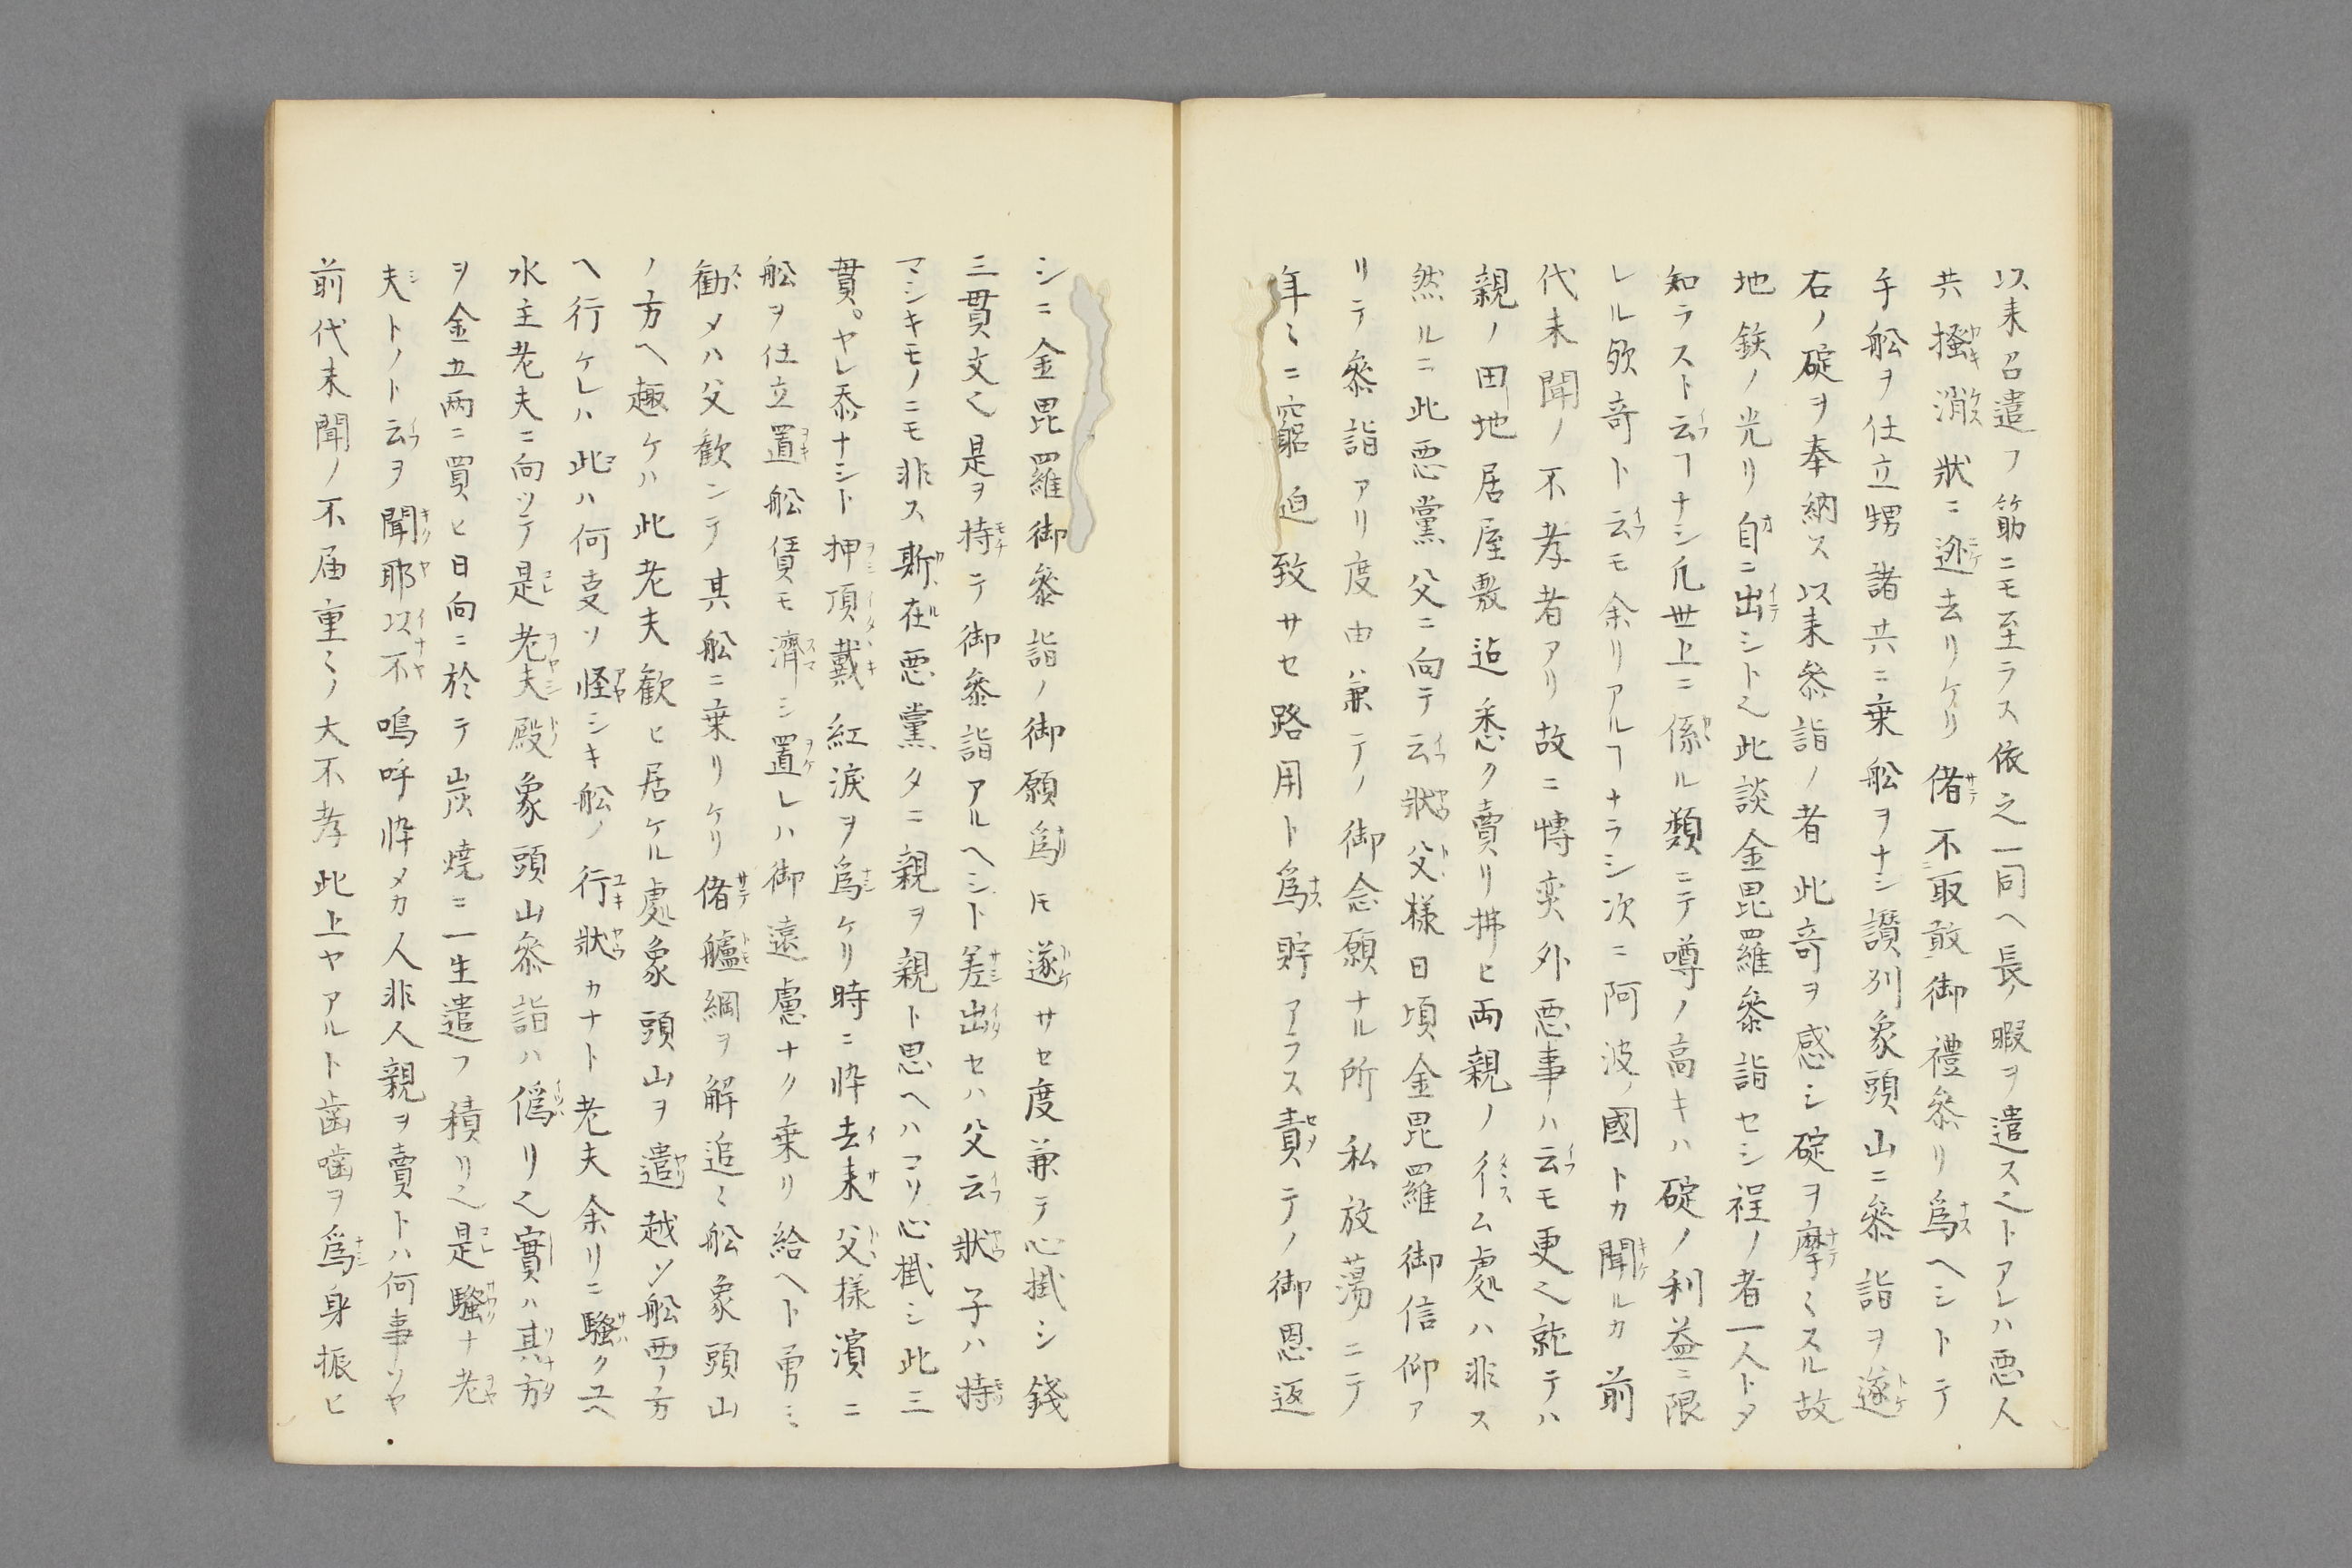 以来召遣フ筋ニモ至ラス依之一同ヘ長ノ暇ヲ遣ス之トアレハ悪人
共掻消状ニ迯去リケリ偖不取敢御禮参リ為ヘシトテ
手舩ヲ仕立甥諸共ニ乗舩ヲナシ讃列象頭山ニ参詣ヲ遂
右ノ碇ヲ奉納ス以来参詣ノ者此竒ヲ感シ碇ヲ摩ミスル故
地鉄ノ光リ自ニ出シト之此談金毘羅参詣セシ程ノ者一人トタ
知ラスト云ヿナシ凢世上ニ係ル類ニテ噂ノ高キハ碇ノ利益ニ限
レル欤竒ト云モ余リアルヿナラシ次ニ阿波ノ國トカ聞ルカ前
代未聞ノ不孝者アリ故ニ慱奕外悪事ハ云モ更之就テハ
親ノ田地居屋敷迠悉ク賣リ拂ヒ両親ノイム處ハ非ス
然ルニ此悪黨父ニ向テ云状父様日頃金毘羅御信仰ア
リテ参詣アリ度由ハ兼テノ御念願ナル所私放蕩ニテ
年ミニ窮迫致サセ路用ト為貯アラス責テノ御恩返
シニ金毘羅御参詣ノ御願為𪜈遂サセ度兼テ心掛シ錢
三貫文之是ヲ持テ御参詣アルヘシト差出セハ父云状子ハ持
マシキモノニモ非ス斯在悪黨タニ親ヲ親ト思ヘハコソ心掛シ此三
貫。ヤレ忝ナシト押頂戴紅涙ヲ為ケリ時ニ忰去来父様濱ニ
舩ヲ仕立置舩賃モ濟シ置レハ御遠慮ナク乗リ給ヘト勇ミ
勧メハ父歓ンテ其舩ニ乗リケリ偖艫綱ヲ解追ミ舩象頭山
ノ方ヘ趣ケハ此老夫歓ヒ居ケル處象頭山ヲ遣越ソ舩西ノ方
ヘ行ケレハ此ハ何叓ソ怪シキ舩ノ行状カナト老夫余リニ騒ク故
水主老夫ニ向ツテ是老夫殿象頭山参詣ハ偽リ之實ハ其方
ヲ金五両ニ買ヒ日向ニ於テ炭燒ニ一生遣フ積リ之是騒ナ老
夫トノト云ヲ聞耶以不嗚呼忰メカ人非人親ヲ賣トハ何事ソヤ
前代未聞ノ不届重ミノ大不孝此上ヤアルト歯噛ヲ為身振ヒ